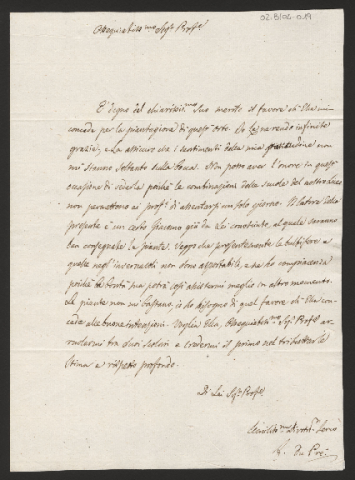 02.B/04-019
Ossequiatiss.mo Sig.r Prof.e
È degno del chiariss.mo Suo merito il favore ch'Ella mi
concede per la piantagione di quest'orto. Io Le ne rendo infinite
grazie, e La assicuro che i sentimenti della mia gratitudine non
mi stanno soltanto sulla bocca. Non potrò aver l'onore in questa
occasione di vederla poichè le combinazioni della scuola del nostro Liceo
non permettono ai prof.i di assentarsi un solo giorno. Il latore della
presente è un certo Giacomo già da Lei conosciuto, al quale saranno
ben consegnate le piante. Veggo che presentemente le bulbifere e
quelle negl'invernacoli non sono asportabili, e ne ho compiacenza
poichè la bontà sua potrà così assistermi meglio in altro momento.
Le piante non mi bastano, io ho bisogno di quel favore ch'Ella con-
cede alle buone intenzioni. Voglia Ella, Ossequiatiss.mo Sig.r Prof.e ar-
ruolarmi tra i suoi scolari e credermi il primo nel tributarle
stima e rispetto profondo.
Di Lei Sig.r Prof.e
Umiliss.mo Devot.mo Servo
G. Da Prè